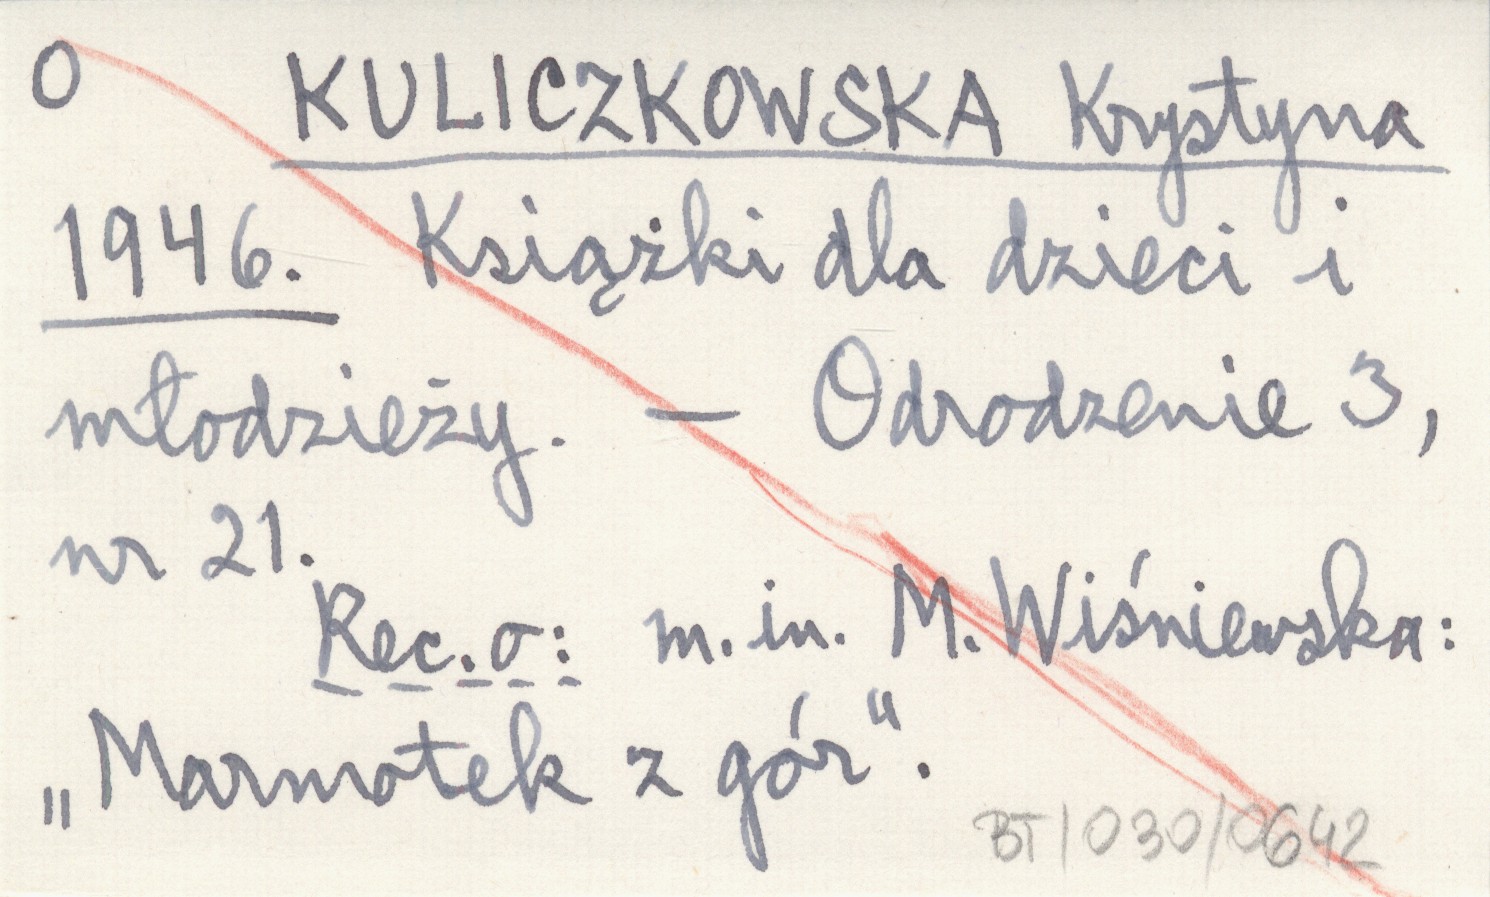 O KULICZKOWSKA Krystyna
1946. Książki dla dzieci i
młodzieży. — Odrodzenie 3,
nr 21.
Rec. o: m. in. M. Wiśniewska:
„Marmotek z gór".
BT/030/0642